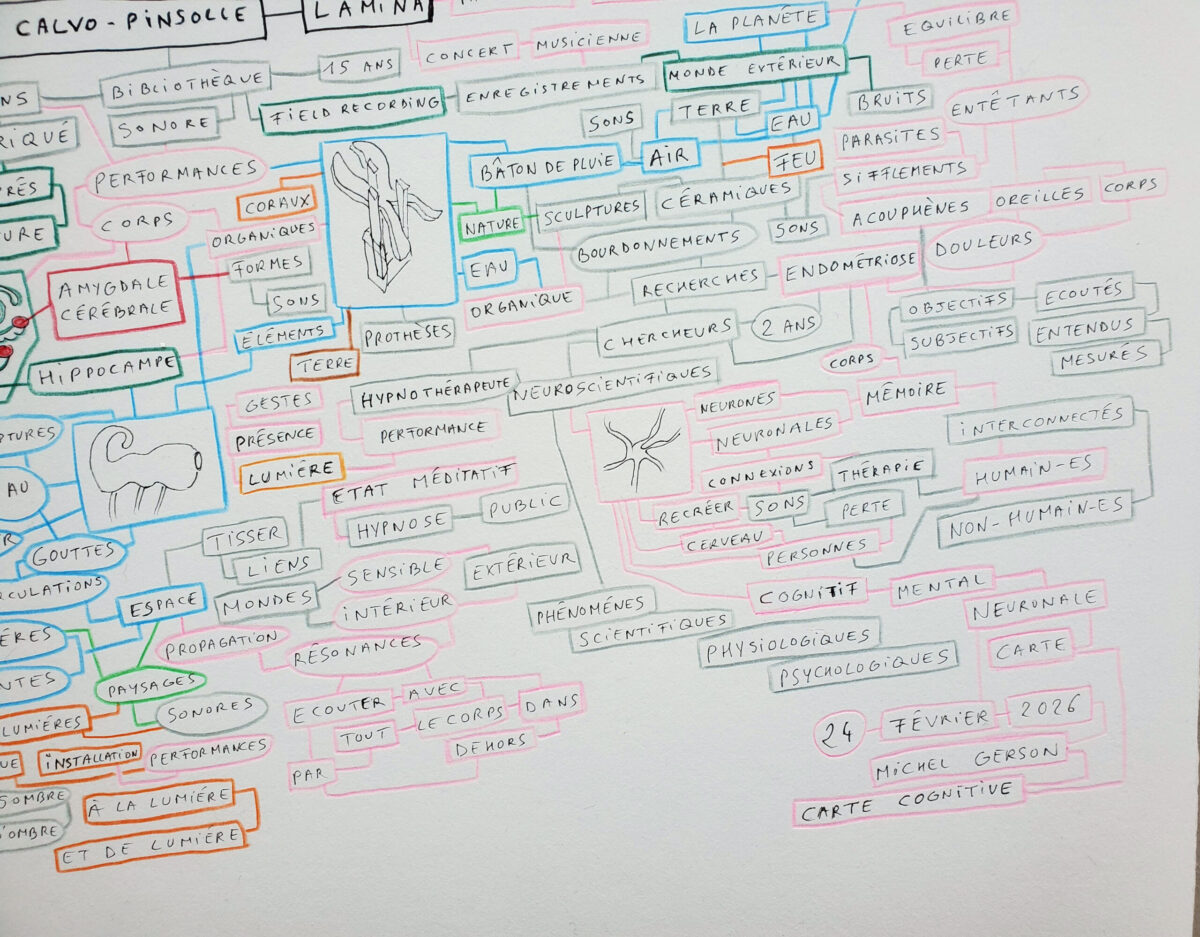 CALVO-PINSOLLE
LAMINA
CONCERT
MUSICIENNE
LA PLANÈTE
EQUILIBRE
PERTE
BIBLIOTHÈQUE
15 ANS
SONORE
FIELD RECORDING
ENREGISTREMENTS
MONDE EXTÉRIEUR
BRUITS
ENTÊTANTS
SONS
TERRE
EAU
PARASITES
PERFORMANCES
CORAUX
BÂTON DE PLUIE
AIR
FEU
SIFFLEMENTS
CORPS
ORGANIQUES
NATURE
SCULPTURES
CÉRAMIQUES
SONS
ACOUPHÈNES
OREILLES
CORPS
BOURDONNEMENTS
DOULEURS
AMYGDALE
CÉRÉBRALE
FORMES
SONS
EAU
ORGANIQUE
RECHERCHES
ENDOMÉTRIOSE
ÉLÉMENTS
PROTHÈSES
CHERCHEURS
2 ANS
OBJECTIFS
SUBJECTIFS
ECOUTÉS
ENTENDUS
MESURÉS
HIPPOCAMPE
TERRE
HYPNOTHÉRAPEUTE
NEUROSCIENTIFIQUES
CORPS
GESTES
PRÉSENCE
LUMIÈRE
PERFORMANCE
NEURONES
NEURONALES
MÉMOIRE
CONNEXIONS
THÉRAPIE
INTERCONNECTÉS
HUMAIN-ES
NON-HUMAIN-ES
AU
ETAT MÉDITATIF
HYPNOSE
PUBLIC
RECRÉER
SONS
PERTE
CERVEAU
PERSONNES
GOUTTES
TISSER
LIENS
MONDES
SENSIBLE
INTÉRIEUR
EXTÉRIEUR
COGNITIF
MENTAL
NEURONALE
CARTE
ESPACE
PROPAGATION
RÉSONANCES
PHÉNOMÉNES
SCIENTIFIQUES
PHYSIOLOGIQUES
PSYCHOLOGIQUES
PAYSAGES
SONORES
ECOUTER
AVEC
TOUT
LE CORPS
DANS
DEHORS
PAR
LUMIÉRES
INSTALLATION
PERFORMANCES
À LA LUMIÉRE
ET DE LUMIÉRE
SOMBRE
24
FÉVRIER
2026
MICHEL GERSON
CARTE COGNITIVE